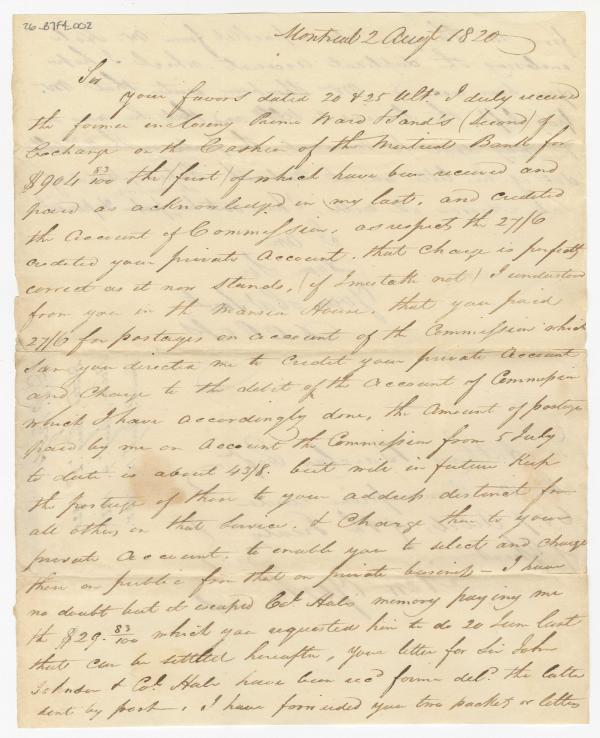 26_B7F4_002
Montreal 2 Augt 1820
Sir
your favors dated 20 & 25 Ulto. I duly received
the former enclosing Prime Ward Sand's (Second) of
Exchange on the Cashier of the Montreal Bank for
$904 83/100 the (first) of which have been received and
paid as acknowledged in my last, and credited
the account of Commission, as respects the 27/6
credited your private account, that charge is perfectly
correct as it now stands, (if I mistake not) I understood
from you in the Mansion House, that you paid
27/6 for postages on account of the Commission which
Sum you directed me to credit your private account
and charge to the debit of the account of Commission
which I have accordingly done, the amount of postage
paid by me on account the Commission from 5 July
to date is about 43/8. but will in future keep
the postage of those to your address distinct from
all others on that Service. & charge them to your
private account. to enable you to select and charge
those on public from that on private business - I have
no doubt but it escaped Col Hales memory paying me
the $29. 83/100 which you requested him to do 20 June last
that can be settled hereafter, your letter for Sir John
Johnson & Col. Hale have been recd former deld. the latter
sent by post. I have forwarded you two packets or letters